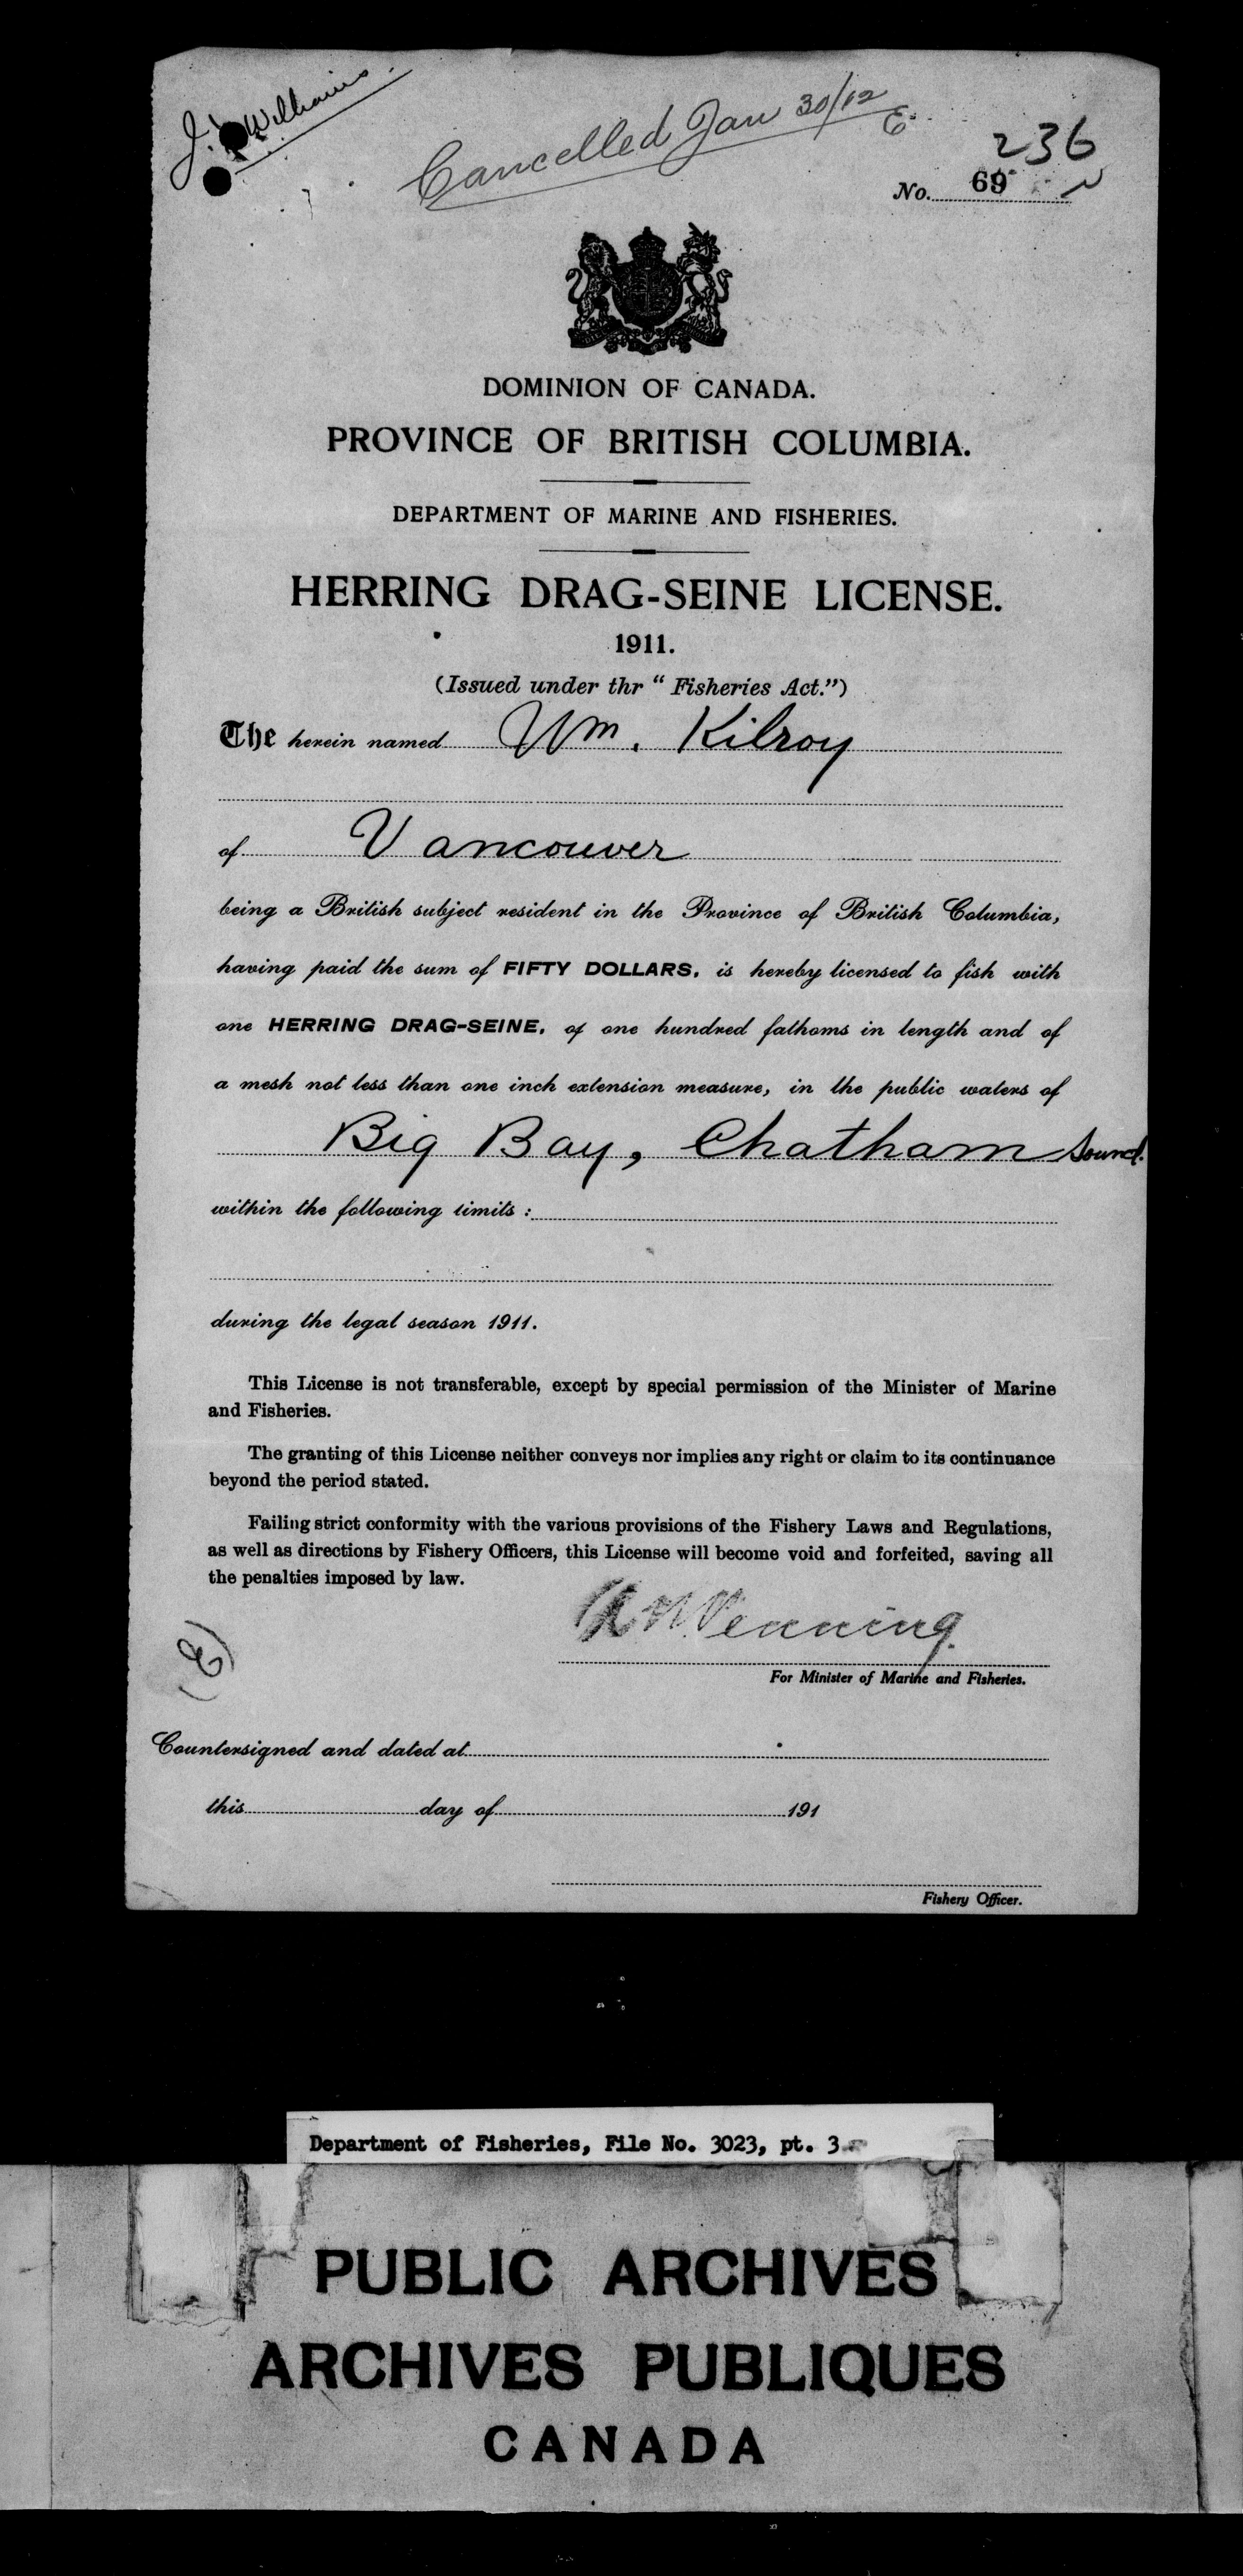 J. Williams.
Cancelled Jan 30/12
E.
236
No. 69
DOMINION OF CANADA.
PROVINCE OF BRITISH COLUMBIA.
DEPARTMENT OF MARINE AND FISHERIES.
HERRING DRAG-SEINE LICENSE.
1911.
(Issued under thr “ Fisheries Act.”)
The herein named Wm. Kilroy
of Vancouver
being a British subject resident in the Province of British Columbia,
having paid the sum of FIFTY DOLLARS, is hereby licensed to fish with
one HERRING DRAG-SEINE, of one hundred fathoms in length and of
a mesh not less than one inch extension measure, in the public waters of
Big Bay, Chatham Sound.
within the following limits :
during the legal season 1911.
This License is not transferable, except by special permission of the Minister of Marine
and Fisheries.
The granting of this License neither conveys nor implies any right or claim to its continuance
beyond the period stated.
Failing strict conformity with the various provisions of the Fishery Laws and Regulations,
as well as directions by Fishery Officers, this License will become void and forfeited, saving all
the penalties imposed by law.
Venning.
For Minister of Marine and Fisheries.
(E)
Countersigned and dated at
this day of 191
Fishery Officer.
Department of Fisheries, File No. 3023, pt. 3
PUBLIC ARCHIVES
ARCHIVES PUBLIQUES
CANADA